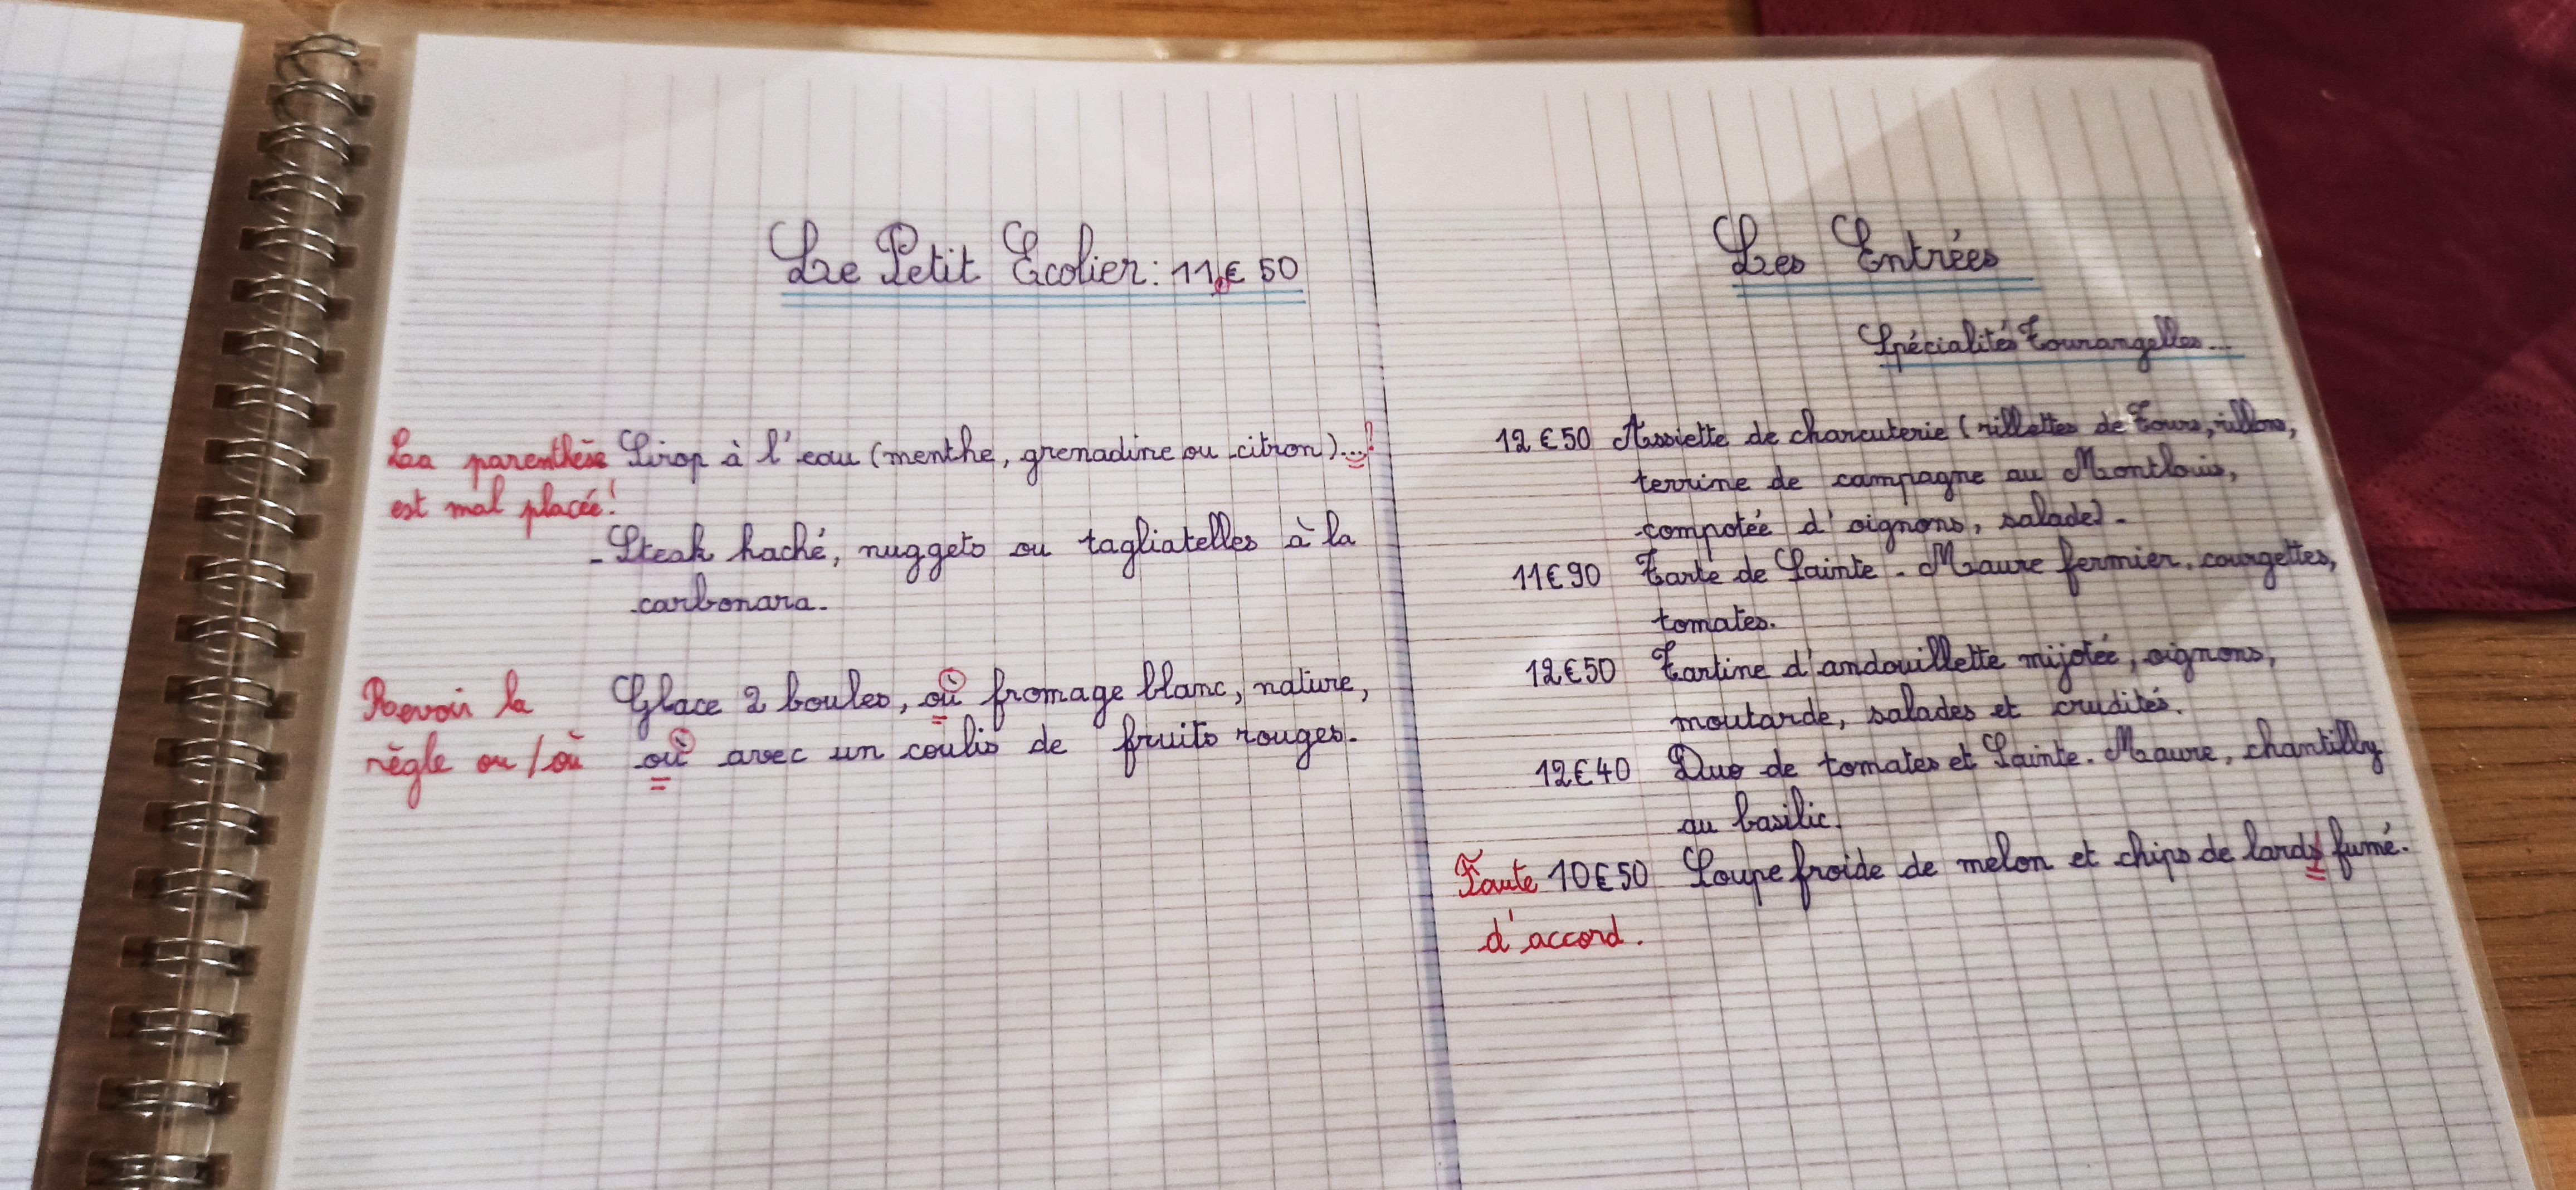 Le Petit Ecolier : 11,€ 50
La parenthèse Sirop à l'eau (menthe, grenadine ou citron)...!
est mal placée !
- Steak haché, nuggets ou tagliatelles à la
carbonara.
Revoir la Glace 2 boules, où fromage blanc, nature,
règle ou / où où avec un coulis de fruits rouges.
Les Entrées
Spécialités Tourangelles...
12 € 50 Assiette de charcuterie (rillettes de Tours, rillons,
terrine de campagne au Montlouis,
compotée d'oignons, salade).
11 € 90 Tarte de Sainte-Maure fermier, courgettes,
tomates.
12 € 50 Tartine d'andouillette mijotée, oignons,
moutarde, salades et crudités.
12 € 40 Duo de tomates et Sainte-Maure, chantilly
au basilic.
Faute 10 € 50 Soupe froide de melon et chips de lards fumé.
d'accord.